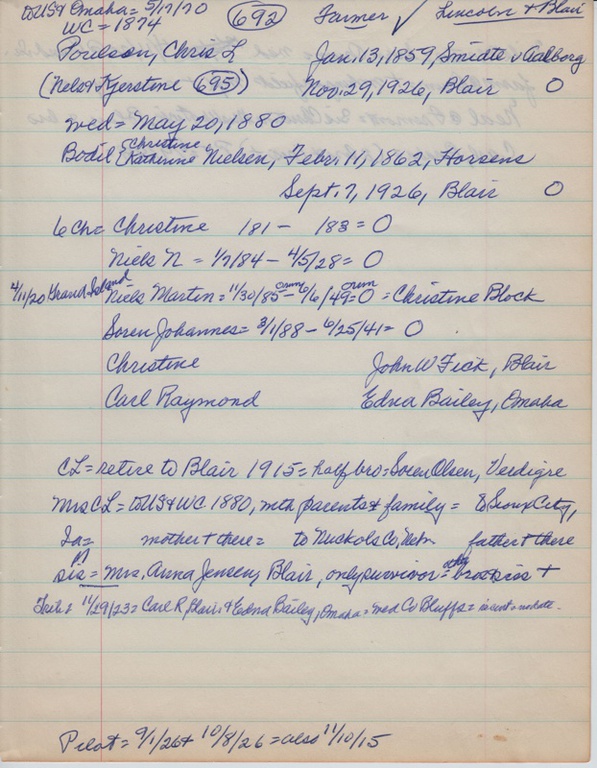 to US & Omaha = 5/17/70 (692) Farmer ✓ Lincoln & Blair
WC = 1874
Poulson, Chris L Jan. 13, 1859, Smidte v Aalborg
(Nels & Kjerstine (695)) Nov. 29, 1926, Blair O
wed = May 20, 1880
Bodil {Christine, Katherine Nielsen, Febr. 11, 1862, Horsens
Sept. 7, 1926, Blair O
6 Ch = Christine 181 - 183 = O
Niels N = 1/7/84 - 4/5/28 = O
4/11/20 Grand Island Niels Martin = 11/30/85 Orum - 6/6/49 Orum = O = Christine Block
Soren Johannes = 3/1/88 - 6/25/41 = O
Christine John W Fick, Blair
Carl Raymond Edna Bailey, Omaha
CL = retire to Blair 1915 = half bro = Soren Olsen, Verdigre
Mrs CL = to US & WC 1880, with parents & family = to Sioux City,
Ia = mother + there = to Nuckols Co, Nebr father + there
sis = Mrs, Anna Jensen, Blair, only survivor = other bros & sis +
Trib: 11/29/23 = Carl R, Blair, & Edna Bailey, Omaha = wed Co Bluffs =
Pilot = 9/1/26 & 10/8/26 = also 11/10/15